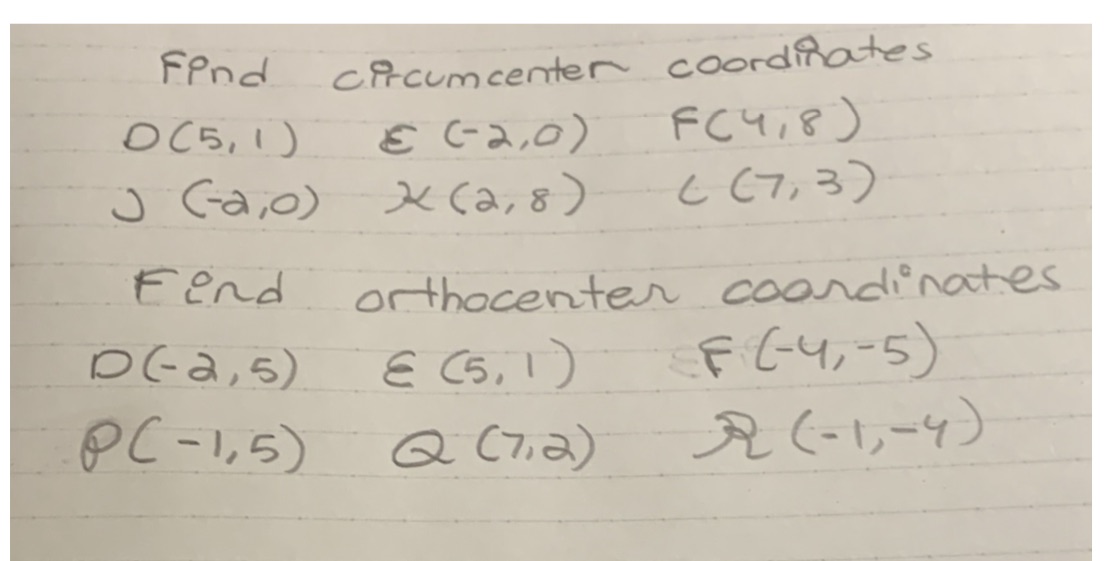 Find circumcenter coordinates
D(5,1) E (-2,0) F(4,8)
J (-2,0) K (2,8) L (7,3)
Find orthocenter coordinates
D(-2,5) E (5,1) F (-4,-5)
P(-1,5) Q (7,2) R (-1,-4)